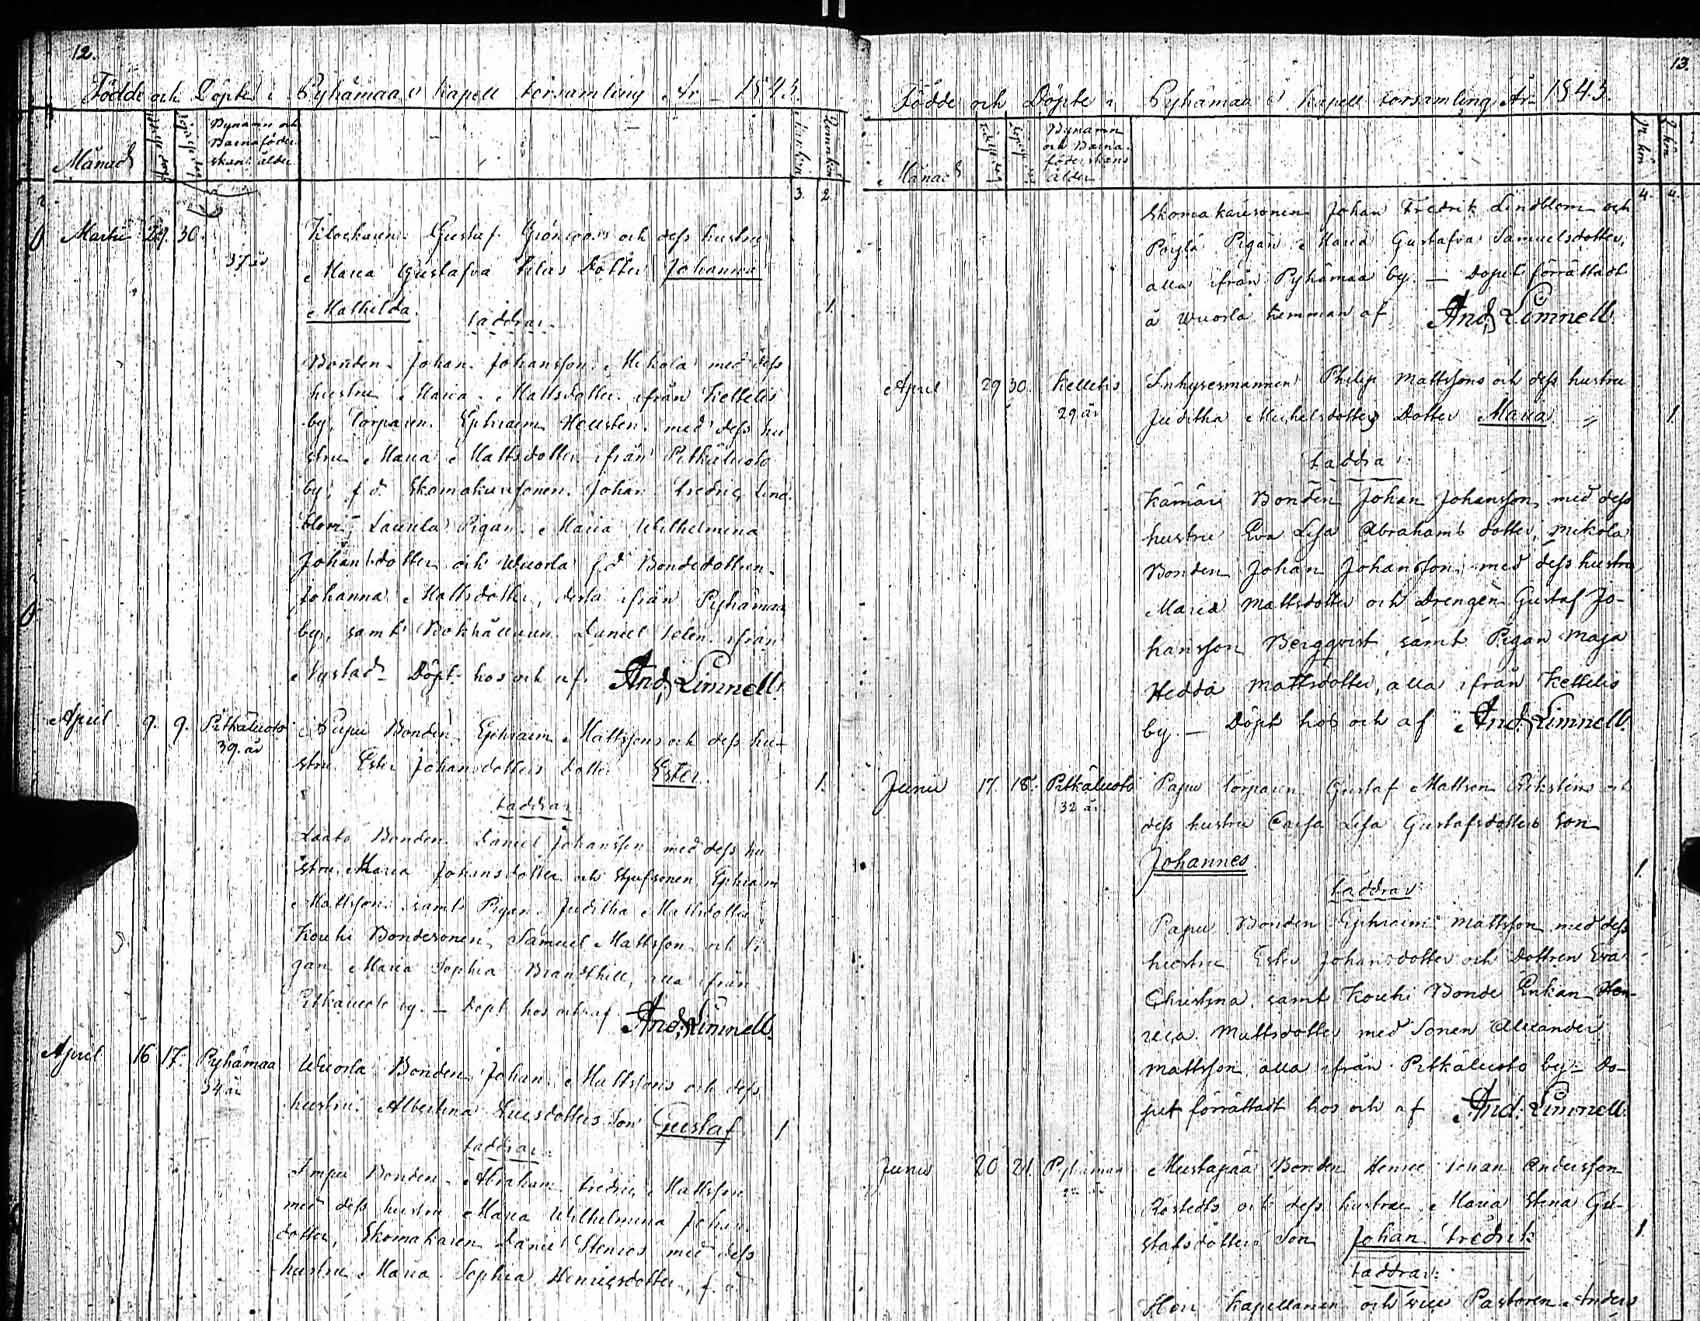 12.
Födde och Döpte i Pyhämaa Kapell församling År 1843.
Månad
Bynamn och Barnaföderskans ålder
3. 2
Martii 29. 30.
Klockaren Gustaf Grönroos och dess hustru
37 år
Maria Gustafva Dotter Johanna
Mathilda. 1.
Faddrar.
Bonden Johan Johansson Mikola med dess
hustru Maria Mattsdotter ifrån Kettelis
by, Torparen Ephraim Hellsten med dess hu
stru Maria Mattsdotter ifrån Pitkäluoto
by, f.d. Skomakaresonen Johan Fredric Lind
blom, Laurila Pigan Maria Wilhelmina
Johansdotter och Wuorla f.d. Bondedottren
Johanna Mattsdotter, ifrån Pyhämaa
by, samt Bokhållaren Daniel ifrån
Nystad - Döpt hos och af And. Limnell
April 9. 9. Pitkäluoto Papu Bonden Ephraim Mattssons och dess hu-
39 år
stru Ester Johansdotters dotter Ester. 1.
Faddrar
Laato Bonden Daniel Johansson med dess hu
stru Maria Johansdotter och Styfsonen Ephraim
Mattsson samt Pigan Juditha Mattsdotter,
Kouhi Bondesonen Samuel Mattsson och Pi-
gan Maria Sophia Brandthill, alla ifrån
Pitkäluoto by. — Döpt hos och af And. Limnell
April 16 17. Pyhämaa Wuorla Bonden Johan Mattssons och dess
34 år
hustru Albertina Son Gustaf 1
Faddrar.
Impu Bonden Abraham Fredric Mattsson
med dess hustru Maria Wilhelmina Johans
dotter, Skomakaren Daniel Stenroos med dess
hustru Maria Sophia Henricsdotter, f.d.
13.
Födde och Döpte i Pyhämaa Kapell församling År 1843.
Månad
Bynamn och Barnaföderskans ålder
4. 2.
Skomakaresonen Johan Fredrik Lindblom och
Pöylä Pigan Maria Gustafva Samuelsdotter,
alla ifrån Pyhämaa by. — Dopet förrättadt
å Wuorla hemman af And. Limnell.
April 29 30. Kettelis Inhysesmannen Philip Mattssons och dess hustru
29 år
Juditha Michelsdotters Dotter Maria 1.
Faddrar
Kämäri Bonden Johan Johansson, med dess
hustru Eva Lisa Abrahams dotter, Mikola
Bonden Johan Johansson, med dess hustru
Maria Mattsdotter och Drengen Gustaf Jo-
hansson Bergqvist, samt Pigan Maja
Hedda Mattsdotter, alla ifrån Kettelis
by. — Döpt hos och af And. Limnell.
Junii 17. 18. Pitkäluoto Papu Torparen Gustaf Mattson och
32 år
dess hustru Caisa Lisa Gustafsdotters Son
Johannes 1.
Faddrar
Papu Bonden Ephraim Mattsson med dess
hustru Ester Johansdotter och Dottren Eva
Christina samt Kouhi Bonde Enkan Hen-
rica Mattsdotter med Sonen Alexander
Mattsson, alla ifrån Pitkäluoto by. Do-
pet förrättadt hos och af And. Limnell.
Junii 20 21. Pyhämaa Mustapää Bonden Henric Johan Andersson
Rostedts och dess hustru Maria Stina Gu-
stafsdotters Son Johan Fredrik 1.
Faddrar:
Herr Kapellanen och vice Pastoren Anders